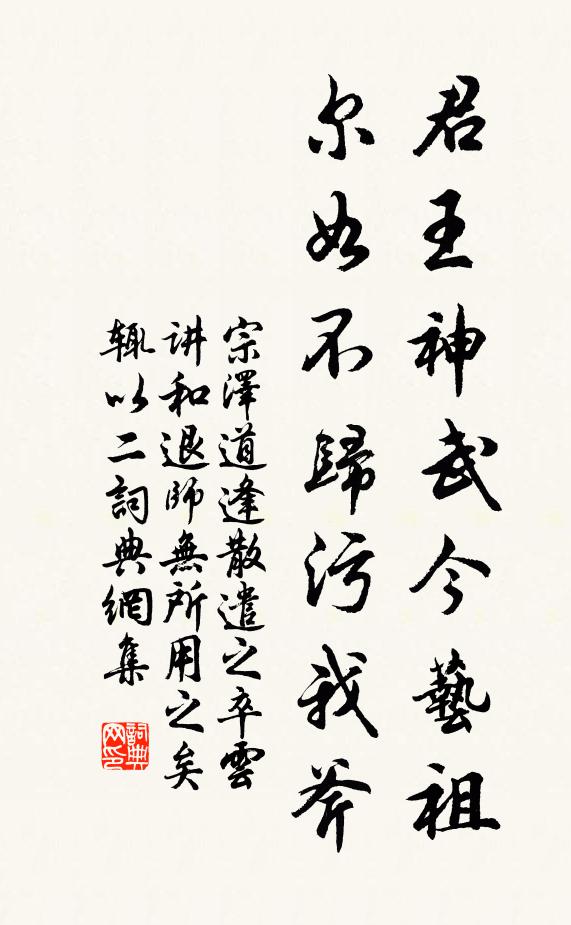 君王神武今藝祖
尔如不歸污我斧
宗澤道逢散遣之卒雲
讲和退師無所用之矣
輒以二詞典網集
詞典网印